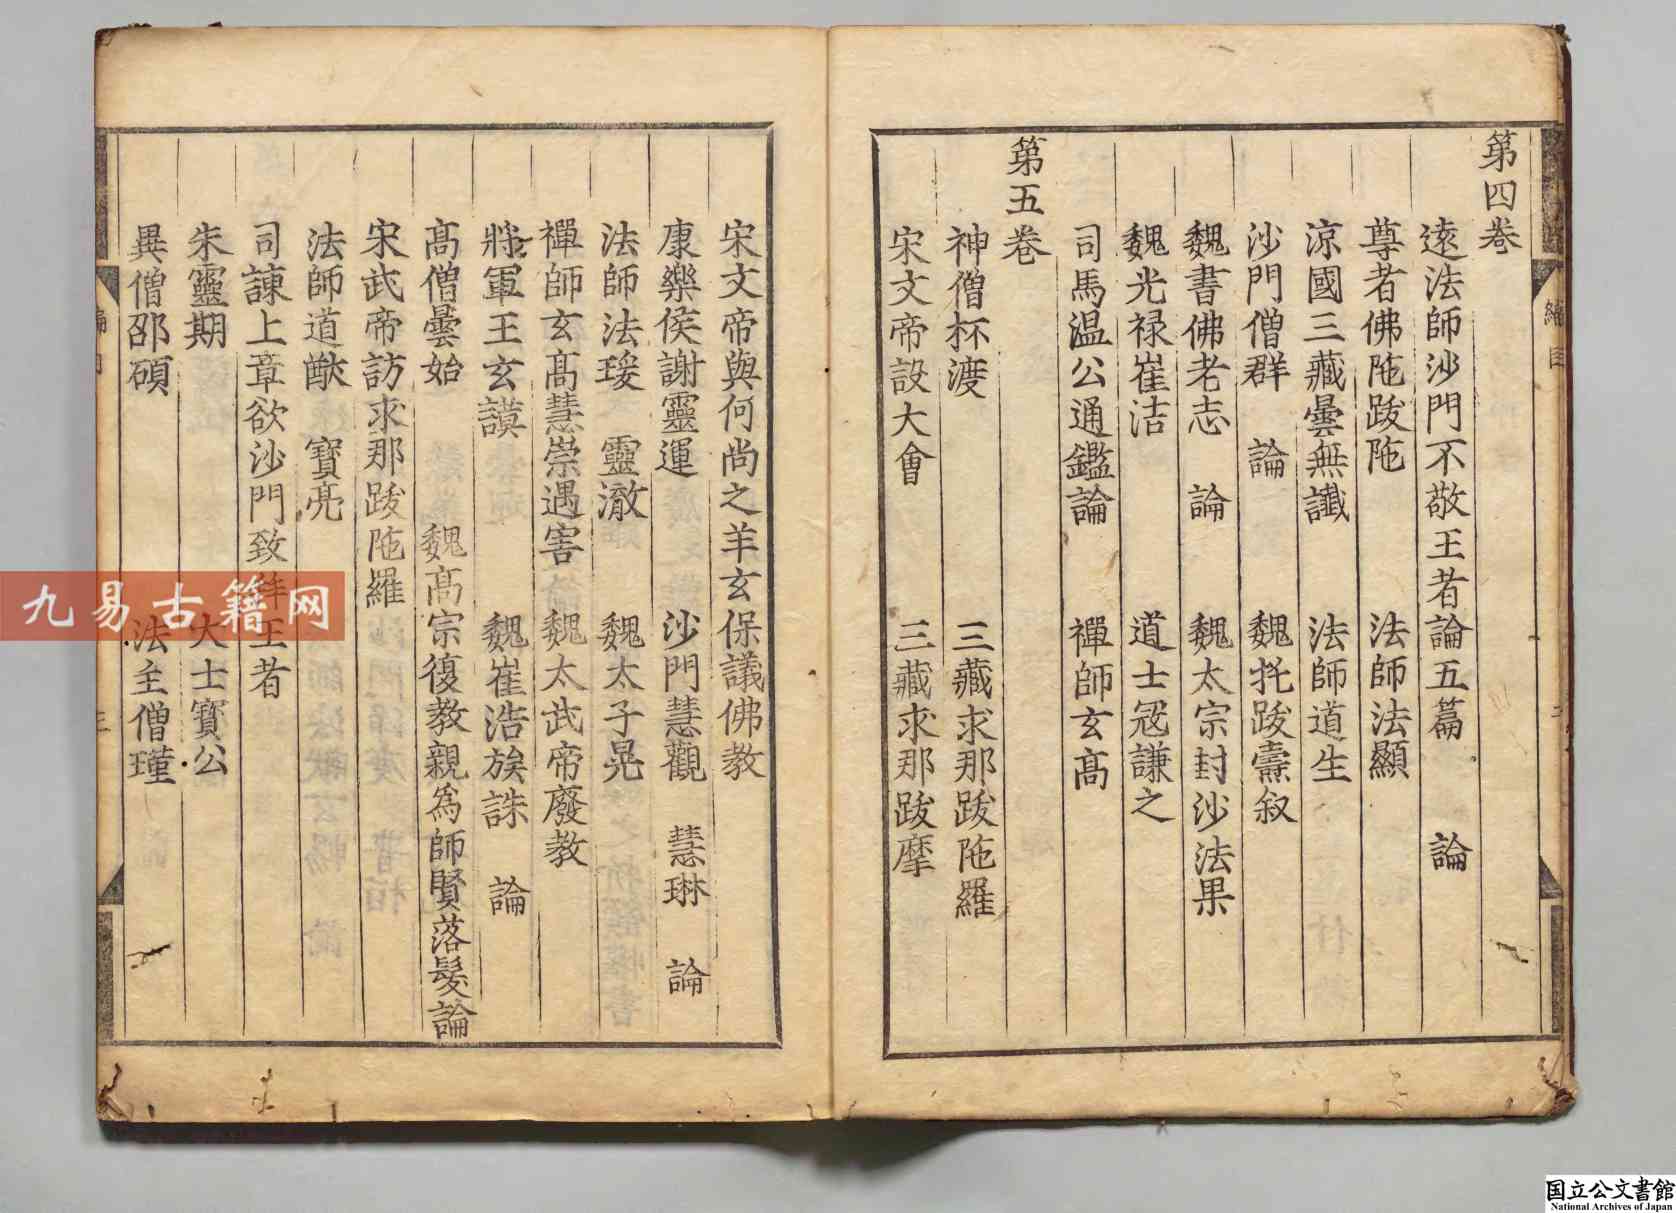 第四卷
遠法師沙門不敬王者論五篇　論
尊者佛陁跋陁　法師法顯
涼國三藏曇無讖　法師道生
沙門僧群　論　魏托跋燾叙
魏書佛老志　論　魏太宗封沙法果
魏光禄崔洁　道士冦謙之
司馬温公通鑑論　禪師玄髙
第五卷
神僧杯渡　三藏求那跋陁羅
宋文帝設大會　三藏求那跋摩
宋文帝與何尚之羊玄保議佛教
康樂侯謝靈運　沙門慧觀　慧琳　論
法師法瑗　靈澈　魏太子晃
禪師玄髙慧崇遇害　魏太武帝廢教
將軍王玄謨　魏崔浩族誅　論
髙僧曇始　魏髙宗復教親為師賢落髮論
宋武帝訪求那跋陁羅
法師道猷　寶亮
司諌上章欲沙門致拜王者
朱靈期　大士寶公
異僧邵碩　法主僧瑾
編目
三
九易古籍网
国立公文書館
National Archives of Japan